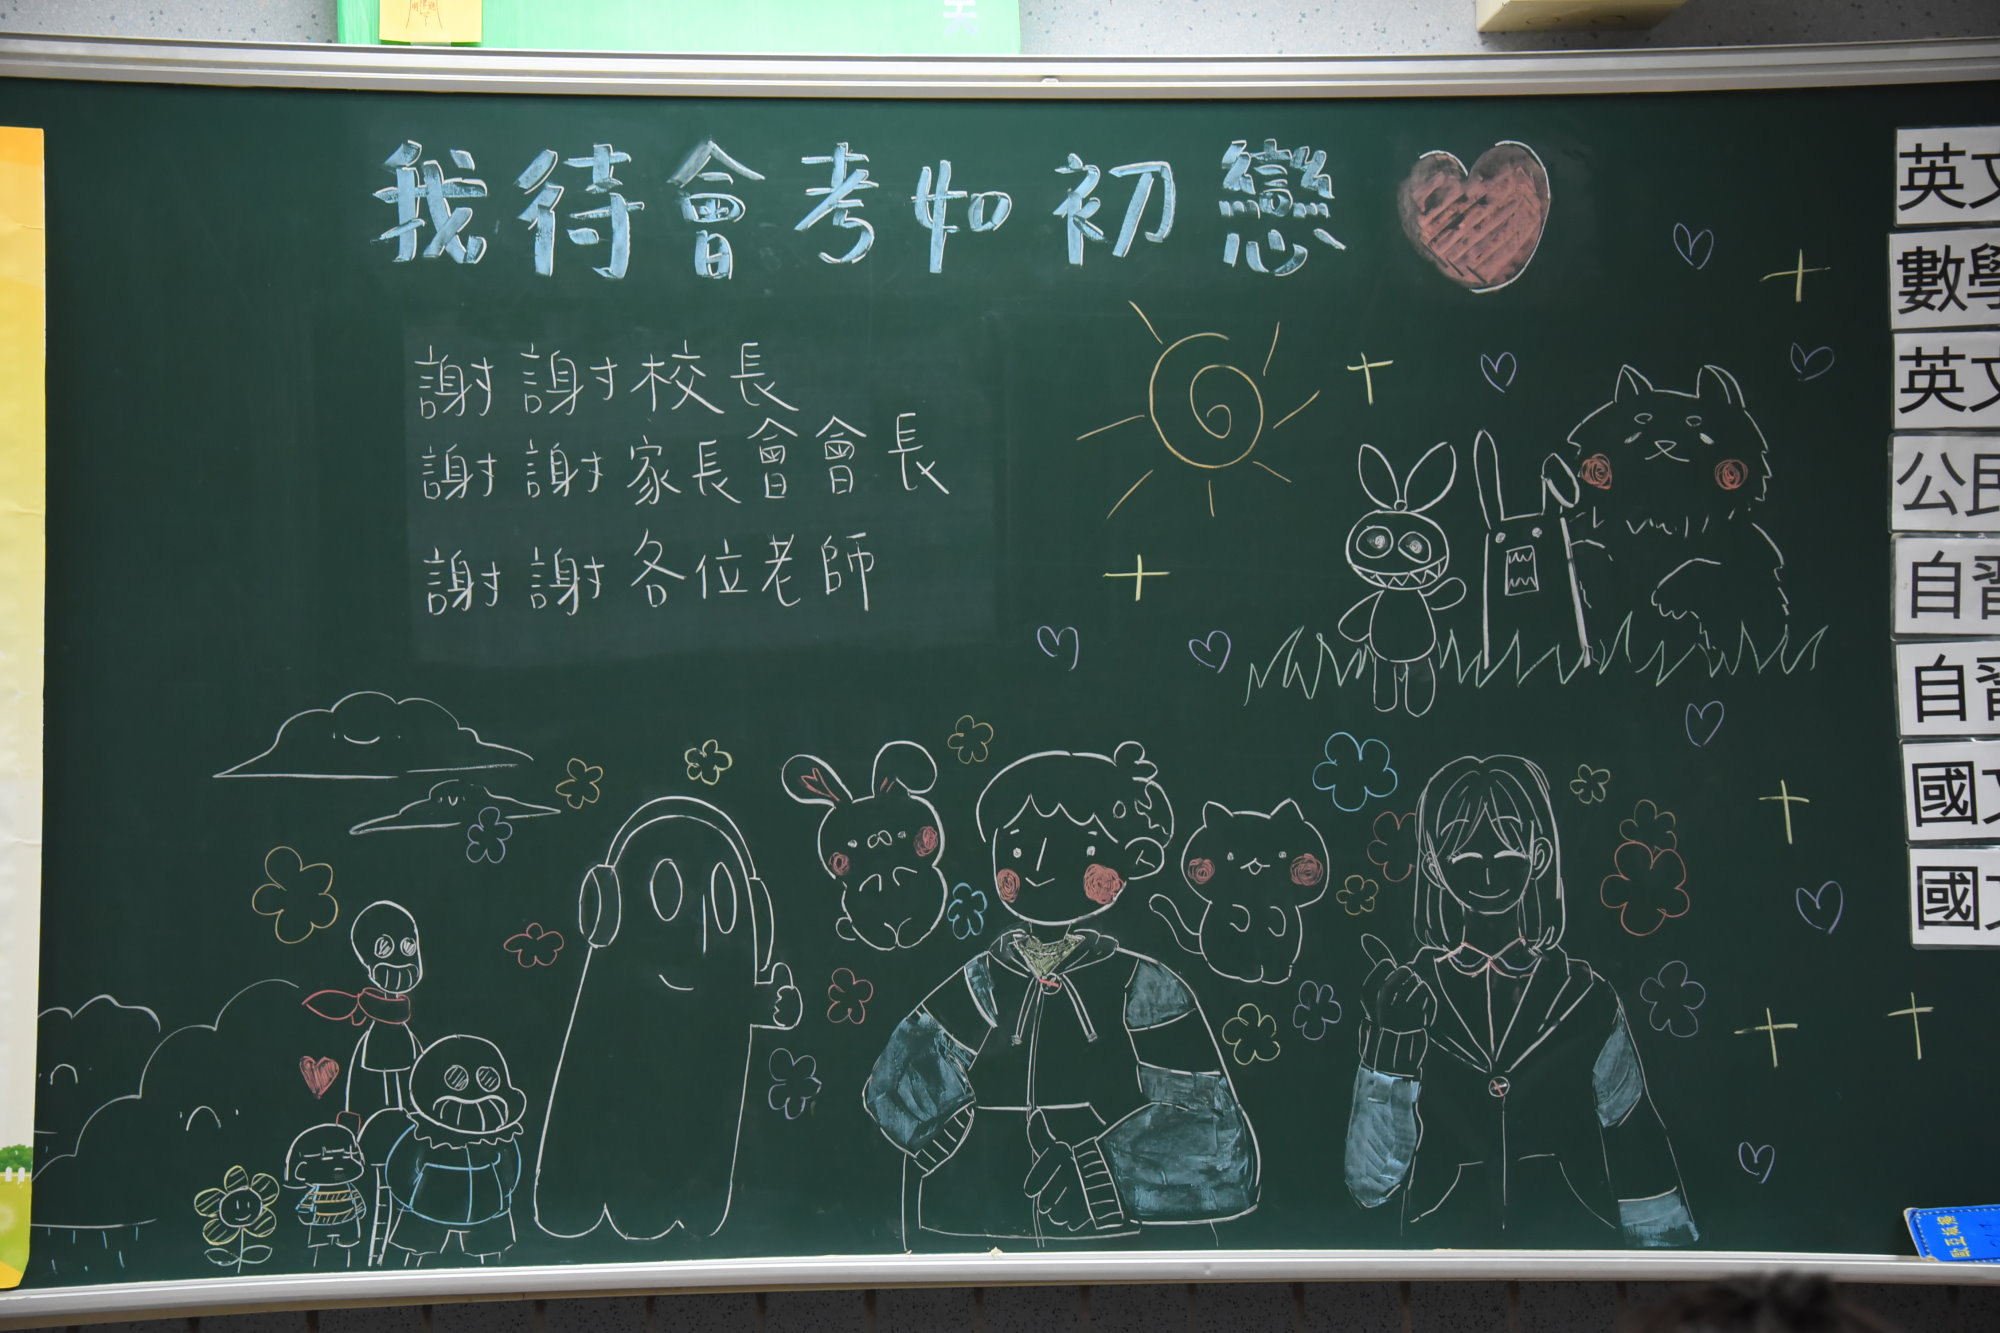 我待會考如初戀
謝謝校長
謝謝家長會會長
謝謝各位老師
英文
數學
英文
公民
自習
自習
國文
國文